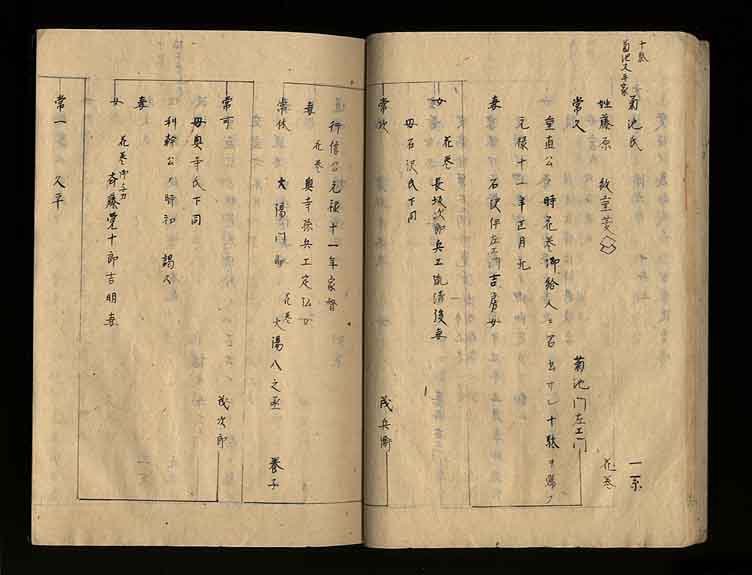 十駄
菊池又平家
菊池氏 一系
姓藤原 紋室菱 花巻
常久 菊池門左エ門
重直公 時花巻御給人ニ召出サレ十駄ヲ賜フ
元禄十二年正月死
妻 石沢伊左エ門吉房女
女 花巻 長坂次郎兵エ 清後妻
母石沢氏下同
常 茂兵衛
行信公元禄十一年家督
妻 花巻 奥寺孫兵エ定 女
常 大湯門 花巻 大湯八之丞 養子
常可 茂次郎
母奥寺氏下同
利幹公 時初 謁ス
妻
女 花巻 斉藤覚十郎吉明妻
常一 又平